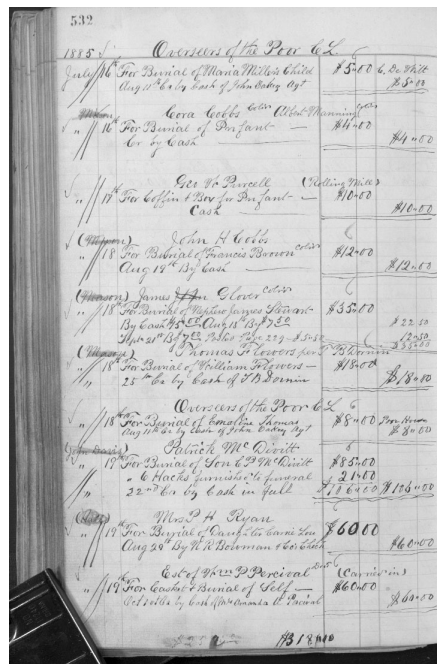 532
1885 Overseers of the Poor C L
July 16th For Burial of Maria Miller's Child $5.00 C. De Witt
Aug 11th Cr by Cash of John Oakey Agt $5.00
Cora Cobbs Col'd Albert Manning Col'd
" 16th For Burial of Infant $4.00
Cr by Cash $4.00
Geo W Purcell (Rolling Mill)
" 17th For Coffin & Box for Infant $10.00
Cash $10.00
(Mason) John H Cobbs
" 18 For Burial of Francis Brown Col'd $12.00
Aug 19th By Cash $12.00
(Mason) James Glover Col'd
" 18th For Burial of Nephew James Stewart $35.00
By Cash $15.00 Aug 15th By $7.50 $22.50
Sept 21st By 7.00 Page 229 - $5.50 12.50
(Mason) Thomas Flowers per T B Dornin
" 18th For Burial of William Flowers $18.00
" 25th Cr by Cash of T B Dornin $18.00
Overseers of the Poor C L
" 18th For Burial of Emeline Thomas $8.00 Poor House
Aug 11th Cr by Cash of John Oakey Agt $8.00
Patrick Mc Divitt
" 19th For Burial of Son E P McDivitt $85.00
" 6 Hacks furnished to funeral 21.00
" 22nd Cr by Cash in full $106.00 $106.00
Mrs P H Ryan
" 19th For Burial of Daughter Carrie Lou $60.00
Aug 29th By N R Bowman & Co's Check $60.00
Est of Wm P Percival Dec'd (Carrier ins)
" 19th For Casket & Burial of Self $60.00
by Cash of Mrs Amanda V. Percival $60.00
$318.00